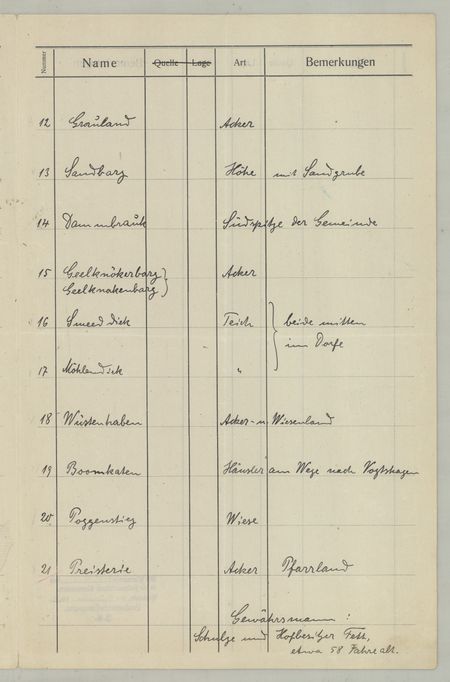 Nummer Name Quelle Lage Art Bemerkungen
12 Grauland Acker
13 Sandbarg Höhe mit Sandgrube
14 Dammbrauk Südspitze der Gemeinde
15 Geelknökerbarg } Acker
Geelknakenbarg
16 Smeeddiek Teich } beide mitten
im Dorfe
17 Möhlendiek "
18 Wüstenhaben Acker- u. Wiesenland
19 Boomkaten Häusler am Wege nach Vogtshagen
20 Poggenstieg Wiese
21 Preisterie Acker Pfarrland
Gewährsmann:
Schulze und Hofbesitzer
etwa 58 Jahre alt.